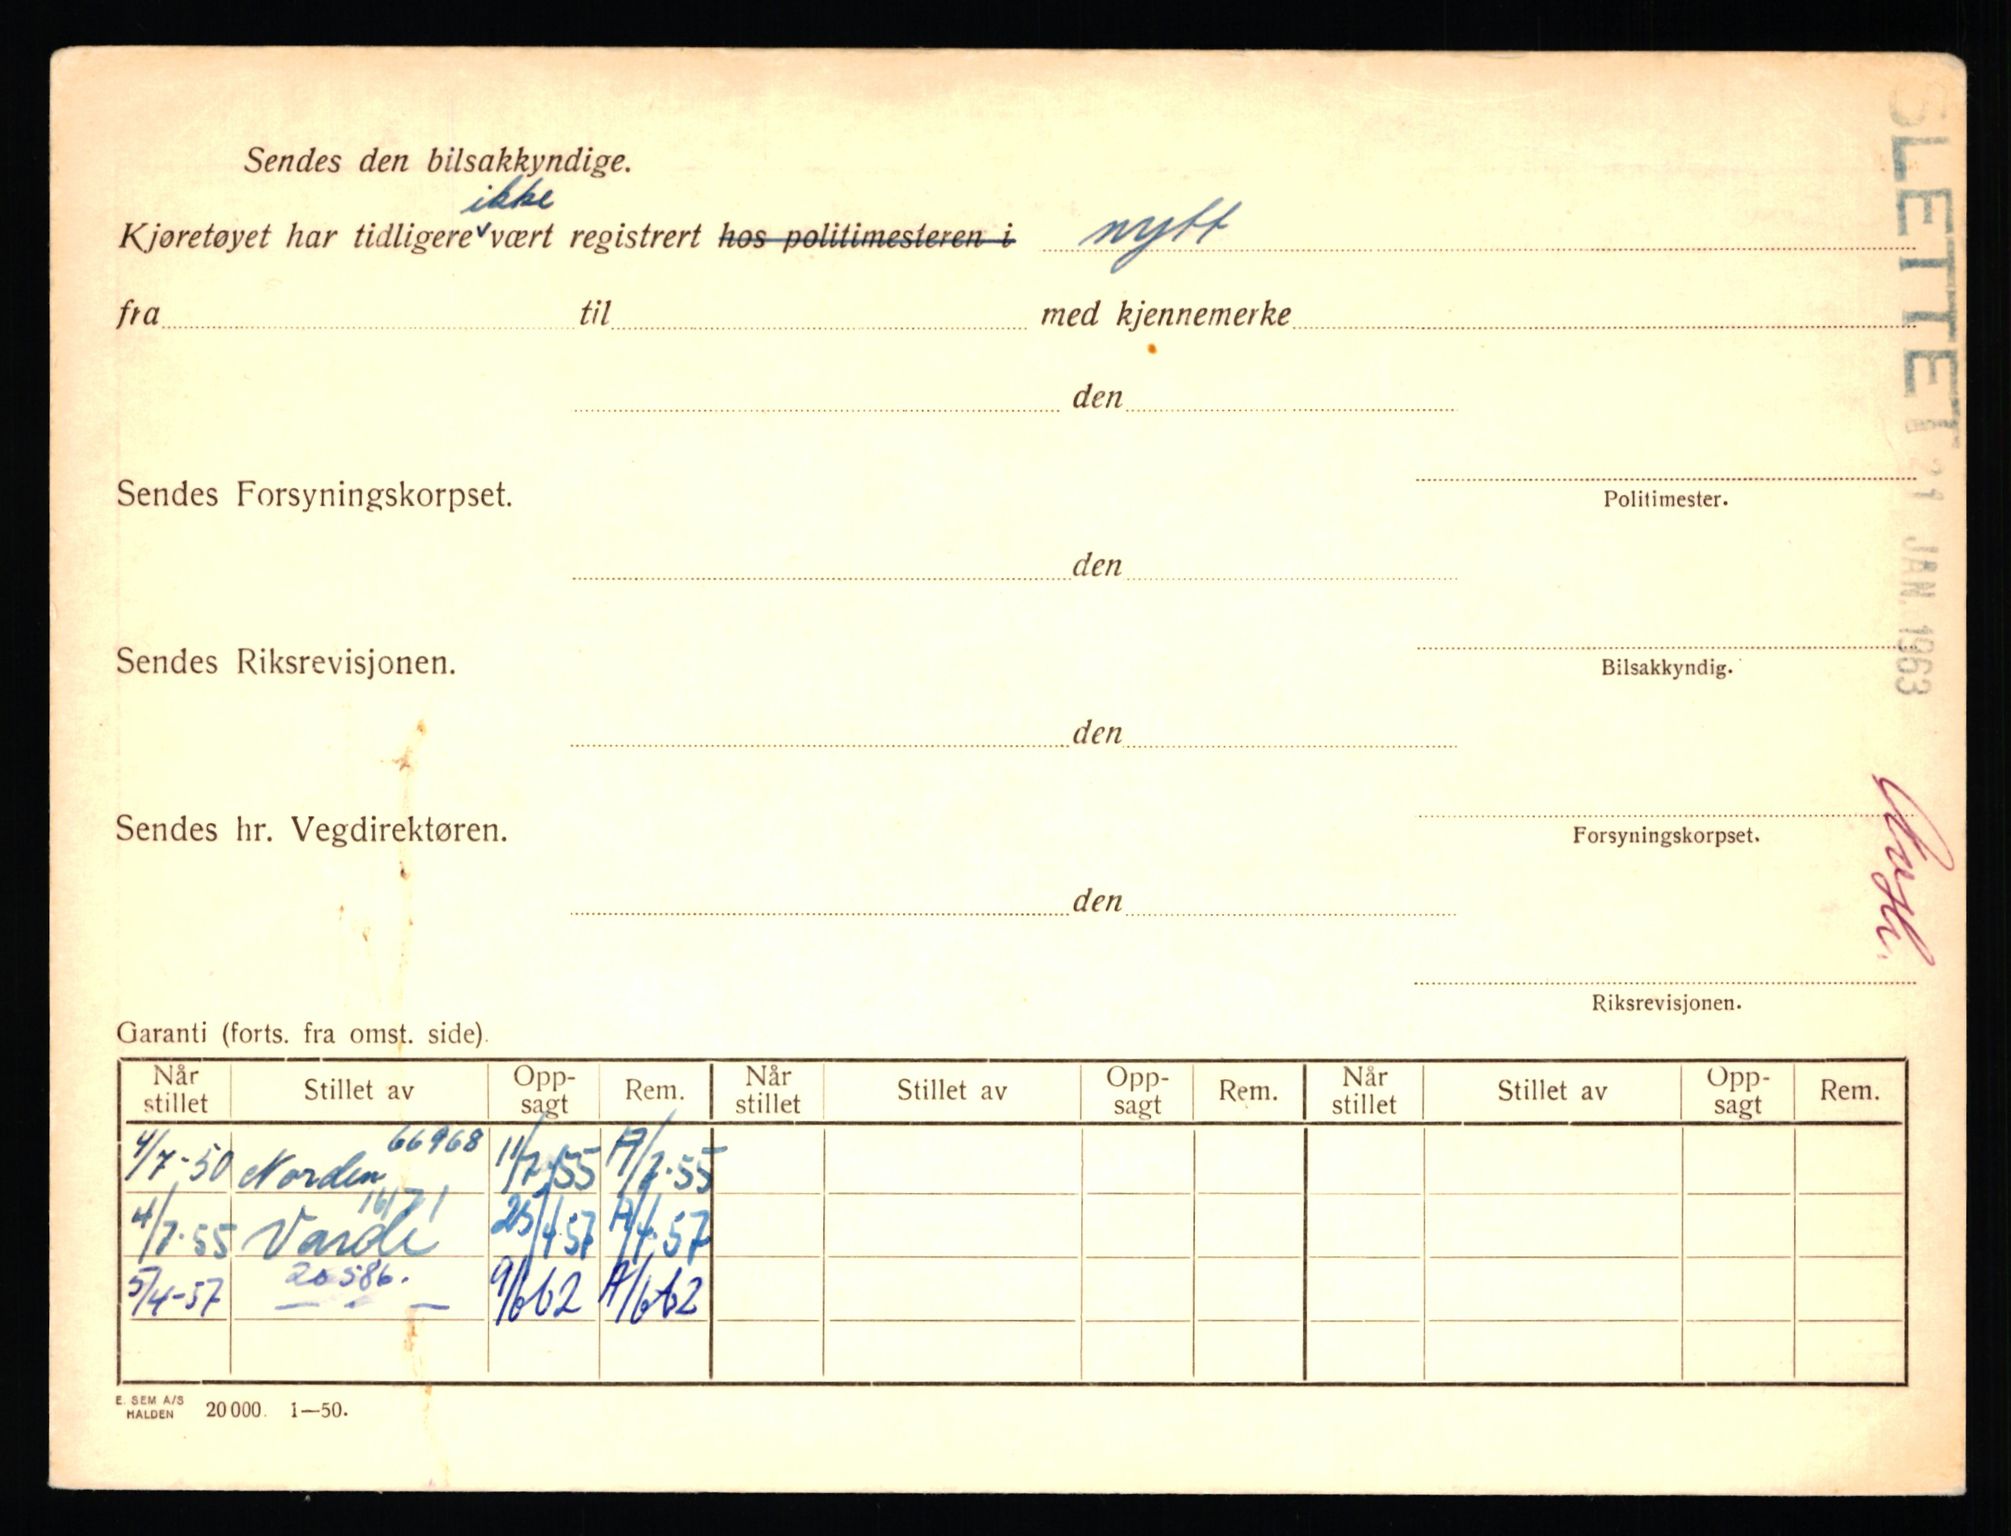 Sendes den bilsakkyndige.
ikke
Kjøretøyet har tidligere ✓ vært registrert hos politimesteren i nytt
fra til med kjennemerke
den
Sendes Forsyningskorpset.
Politimester.
den
Sendes Riksrevisjonen.
Bilsakkyndig.
den
Sendes hr. Vegdirektøren.
Forsyningskorpset.
den
Riksrevisjonen.
SLETTET 21 JAN. 1963
Garanti (forts. fra omst. side).
Når stillet Stillet av Opp-sagt Rem. Når stillet Stillet av Opp-sagt Rem. Når stillet Stillet av Opp-sagt Rem.
4/7-50 Norden 66968 11/7.55 A/7.55
4/7.55 Varde 16171 25/4.57 A/4.57
5/4-57 20586. — " — 9/6 62 A/6 62
E. SEM A/S
HALDEN 20 000. 1—50.